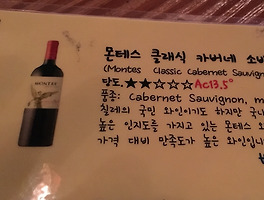 MONTES
몬테스 클래식 카버네 소비
(Montes Classic Cabernet Sauvign
당도.★★☆☆☆Ac13.5°
품종: Cabernet Sauvignon, m
칠레의 국민 와인이기도 하지만 국내
높은 인지도를 가지고 있는 몬테스 와
가격 대비 만족도가 높은 와인입니